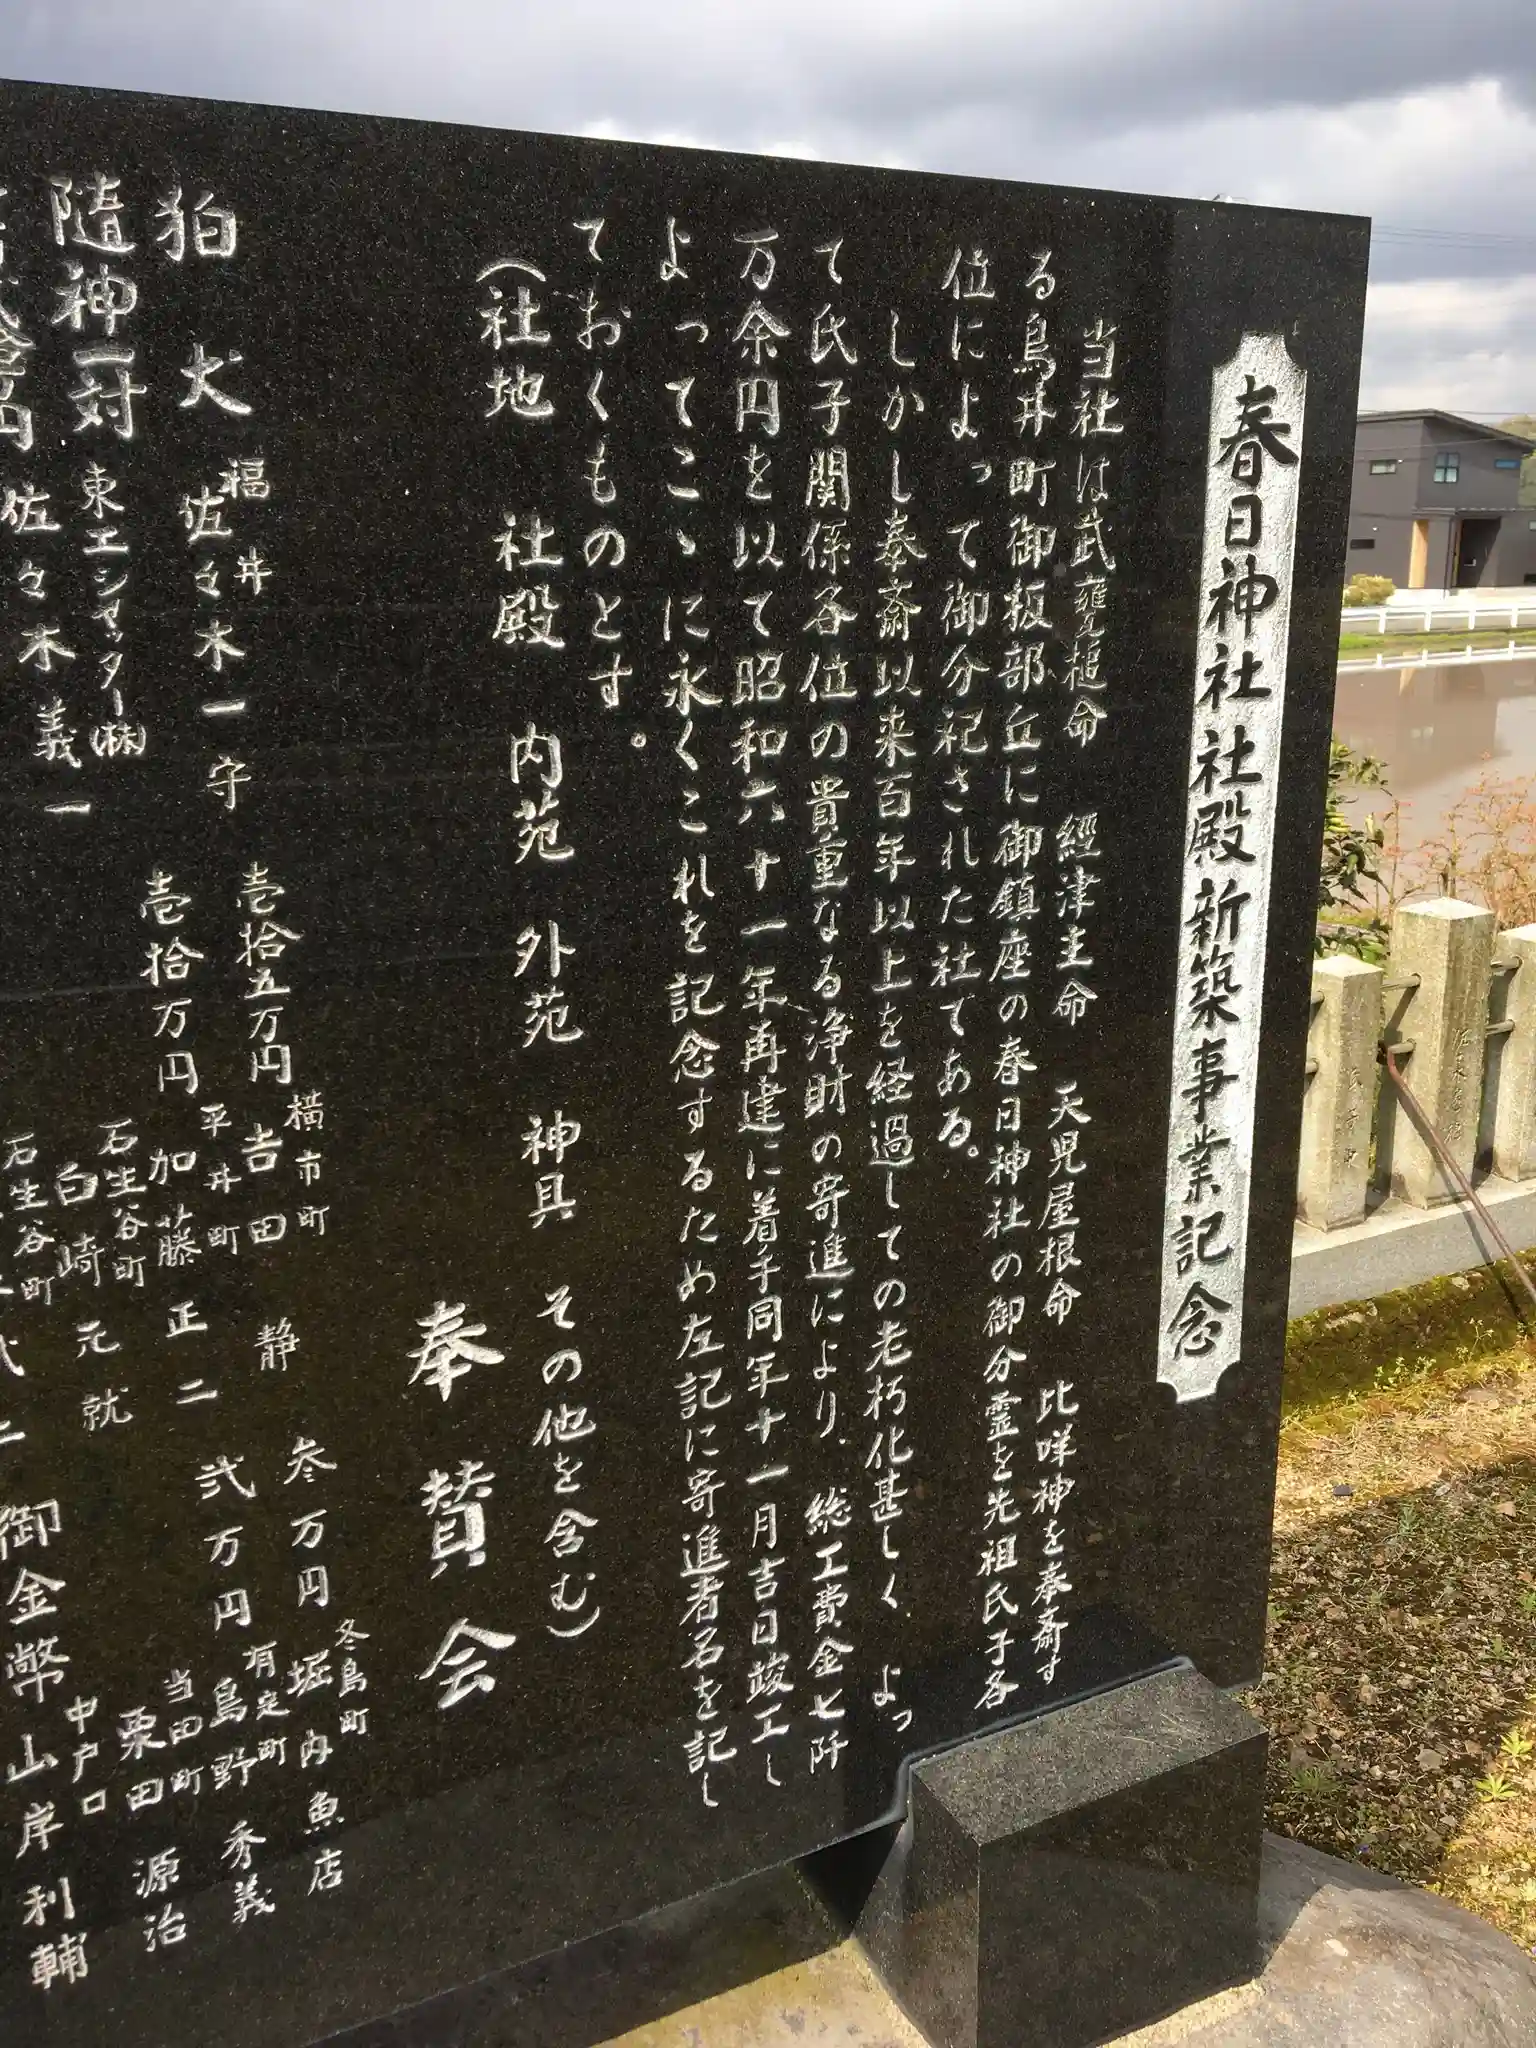 春日神社社殿新築事業記念
当社は武甕槌命 經津主命 天児屋根命 比咩神を奉斎す
る鳥井町御板部丘に御鎮座の春日神社の御分霊を先祖氏子各
位によって御分祀された社である。
しかし奉斎以来百年以上を経過しての老朽化甚しく よっ
て氏子関係各位の貴重なる浄財の寄進により、総工費金七阡
万余円を以て昭和六十一年再建に着手同年十一月吉日竣工し
よってこゝに永くこれを記念するため左記に寄進者名を記し
ておくものとす。
(社地 社殿 内苑 外苑 神具 その他を含む)
奉賛会
狛犬 福井 佐々木一守 壱拾五万円 横市町 吉田静 参万円 冬鳥町 堀内魚店
随神一対 東工シャッター㈱ 壱拾万円 平井町 加藤正二 弐万円 有定町 鳥野秀義
佐々木義一 石生谷町 白崎元就 当田町 栗田源治
石生谷町 御金幣 中戸口 山岸利輔